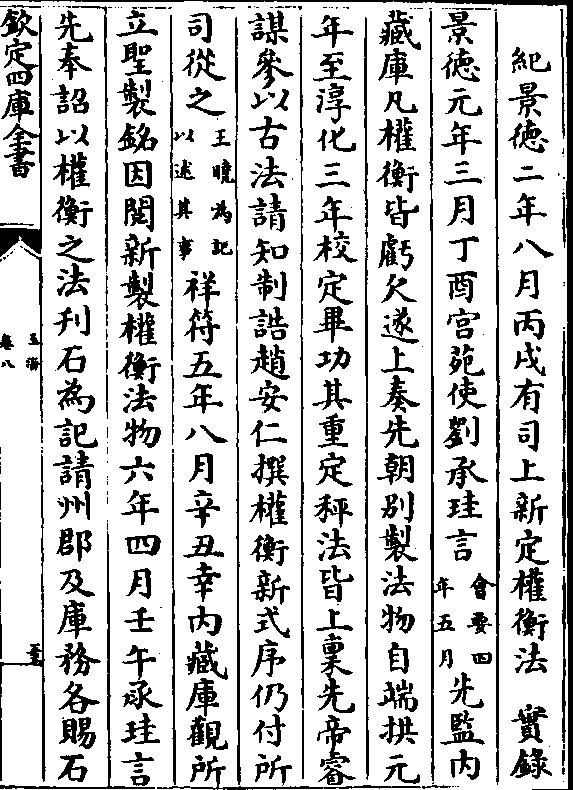 紀景德二年八月丙戌有司上新定權衡法　實錄
景德元年三月丁酉宫苑使劉承珪言會要四年五月先監内
藏庫凡權衡皆虧欠遂上奏先朝别製法物自端拱元
年至淳化三年校定畢功其重定秤法皆上稟先帝睿
謀參以古法請知制誥趙安仁撰權衡新式序仍付所
司從之王曉為記以述其事祥符五年八月辛丑幸内藏庫觀所
立聖製銘因閱新製權衡法物六年四月壬午承珪言
先奉詔以權衡之法刋石為記請州郡及庫務各賜石
欽定四庫全書
玉海
卷八